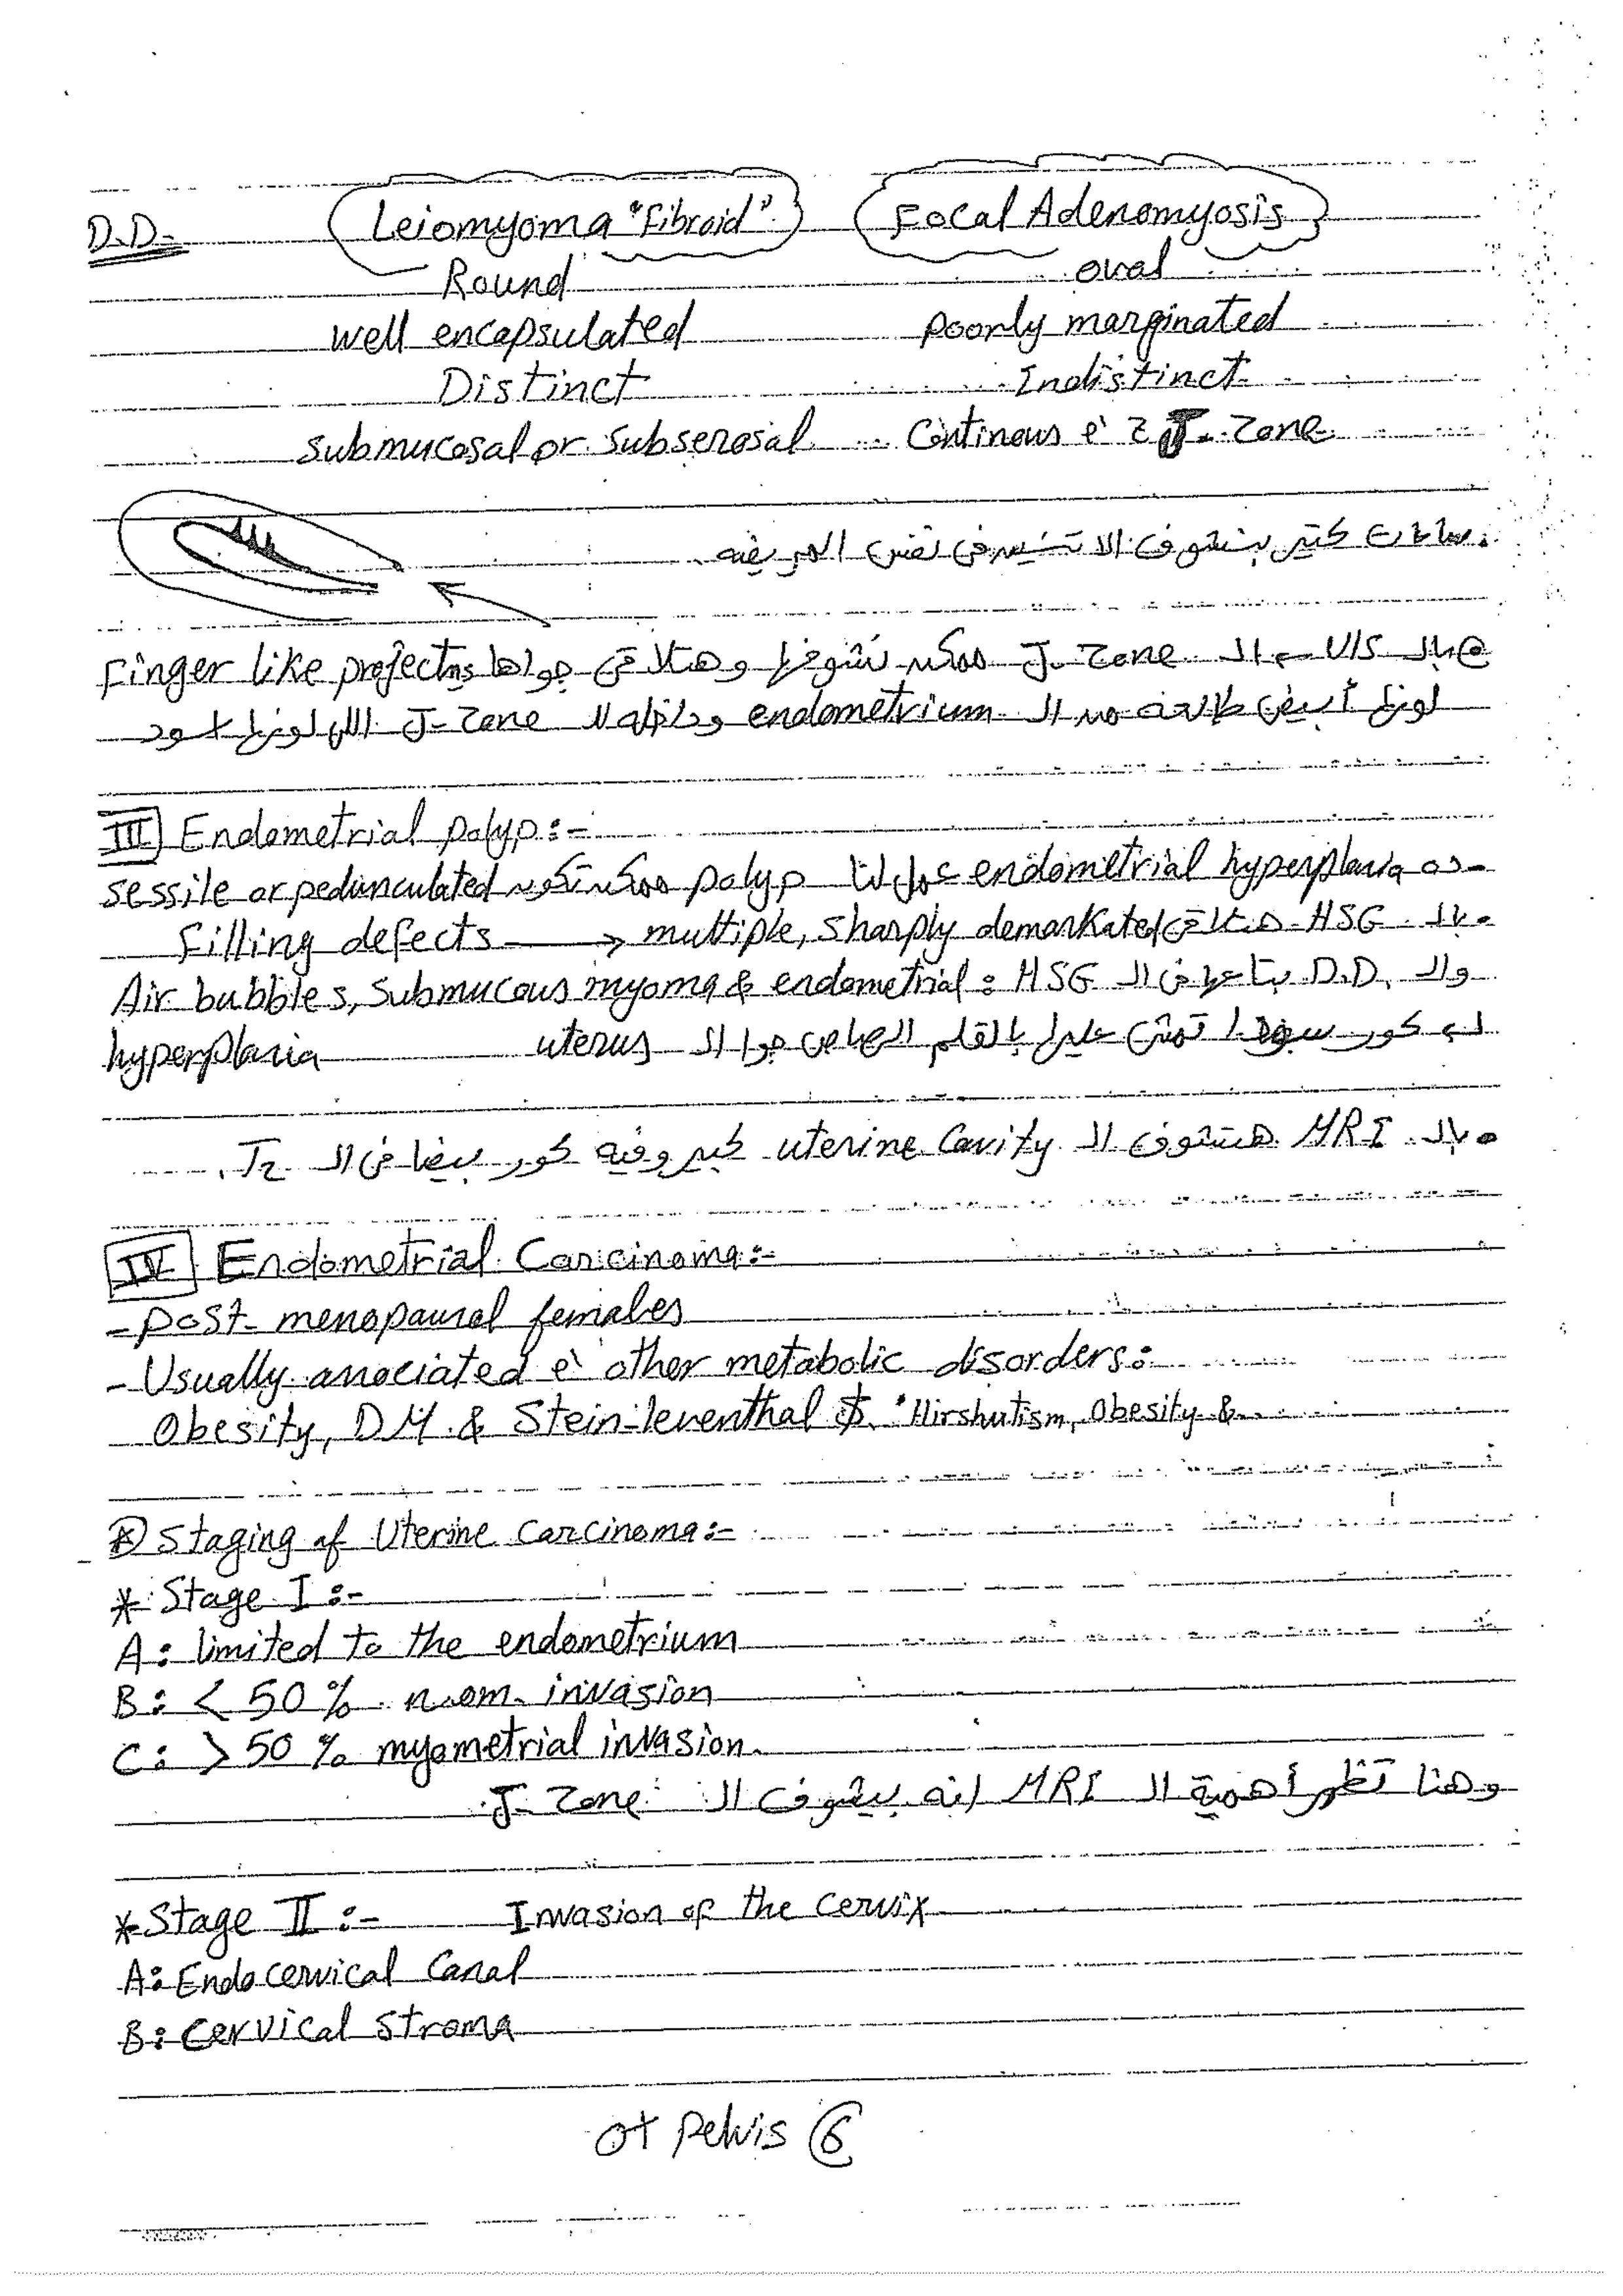 D.D. Leiomyoma "Fibroid" Focal Adenomyosis
Round oval
well encapsulated poorly marginated
Distinct Indistinct
submucosal or subserosal Continous è J-Zone
ساعات كتير بنشوف الاتنين فى نفس المريضه
بالـ U/S الـ J-Zone ممكن نشوفها وهنلاقى جواها Finger like projectns
لونها أبيض طالعه من الـ endometrium وداخله للـ J-Zone اللى لونها اسود
III Endometrial polyp:-
ده endometrial hyperplasia عمل لنا polyp ممكن تكون sessile or pedunculated
بالـ HSG هنلاقى multiple, sharply demarkated → Filling defects
والـ D.D. بتاعها فى الـ HSG: Air bubbles, Submucous myoma & endometrial
hyperplasia كور سودا تمشى عليها بالقلم الرصاص جوا الـ uterus
بالـ MRI هنشوف الـ uterine Cavity كبير وفيه كور بيضا فى الـ T2.
IV Endometrial Carcinoma:-
- post-menopausal females
- Usually associated è other metabolic disorders:
Obesity, DM & Stein-leventhal $. "Hirshutism, Obesity &
Staging of Uterine Carcinoma:-
* Stage I:-
A: limited to the endometrium
B: < 50 % invasion
C: > 50 % myometrial invasion.
وهنا تظهر أهمية الـ MRI إنه بيشوف الـ J-Zone.
* Stage II:- Invasion of the Cervix
A: Endocervical Canal
B: Cervical Stroma
Pelvis 6